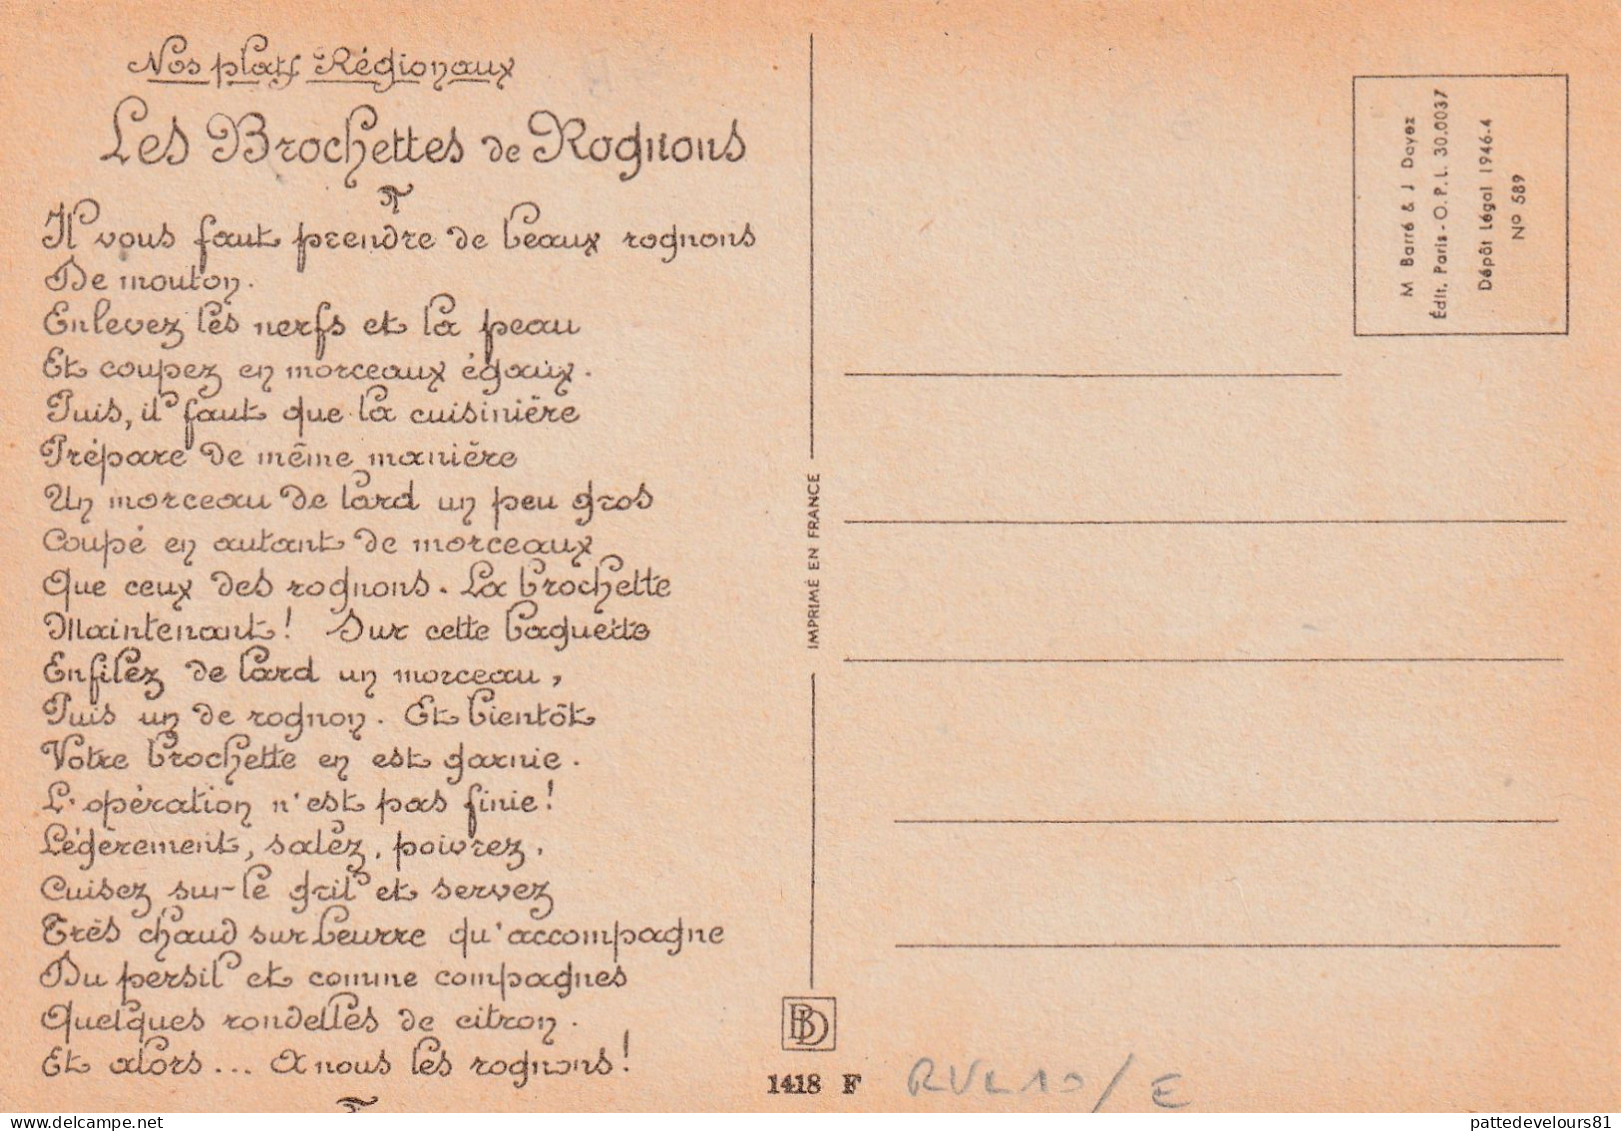 Nos plats Régionaux
Les Brochettes de Rognons
Il vous faut prendre de beaux rognons
De mouton.
Enlevez les nerfs et la peau
Et coupez en morceaux égaux.
Puis, il faut que la cuisinière
Prépare de même manière
Un morceau de lard un peu gros
Coupé en autant de morceaux
Que ceux des rognons. La brochette
Maintenant! Sur cette baguette
Enfilez de lard un morceau,
Puis un de rognon. Et bientôt
Votre brochette en est garnie.
L'opération n'est pas finie!
Légèrement, salez, poivrez,
Cuisez sur le gril et servez
Très chaud sur beurre qu'accompagne
Du persil et comme compagnes
Quelques rondelles de citron.
Et alors... A nous les rognons!
IMPRIMÉ EN FRANCE
BD
1418 F
RVL10/E
M Barré & J Dayez
Édit. Paris - O. P. L. 30.0037
Dépôt Légal 1946-4
Nº 589
pattedevelours81